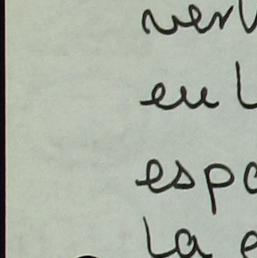 ver
eu l
espa
La e